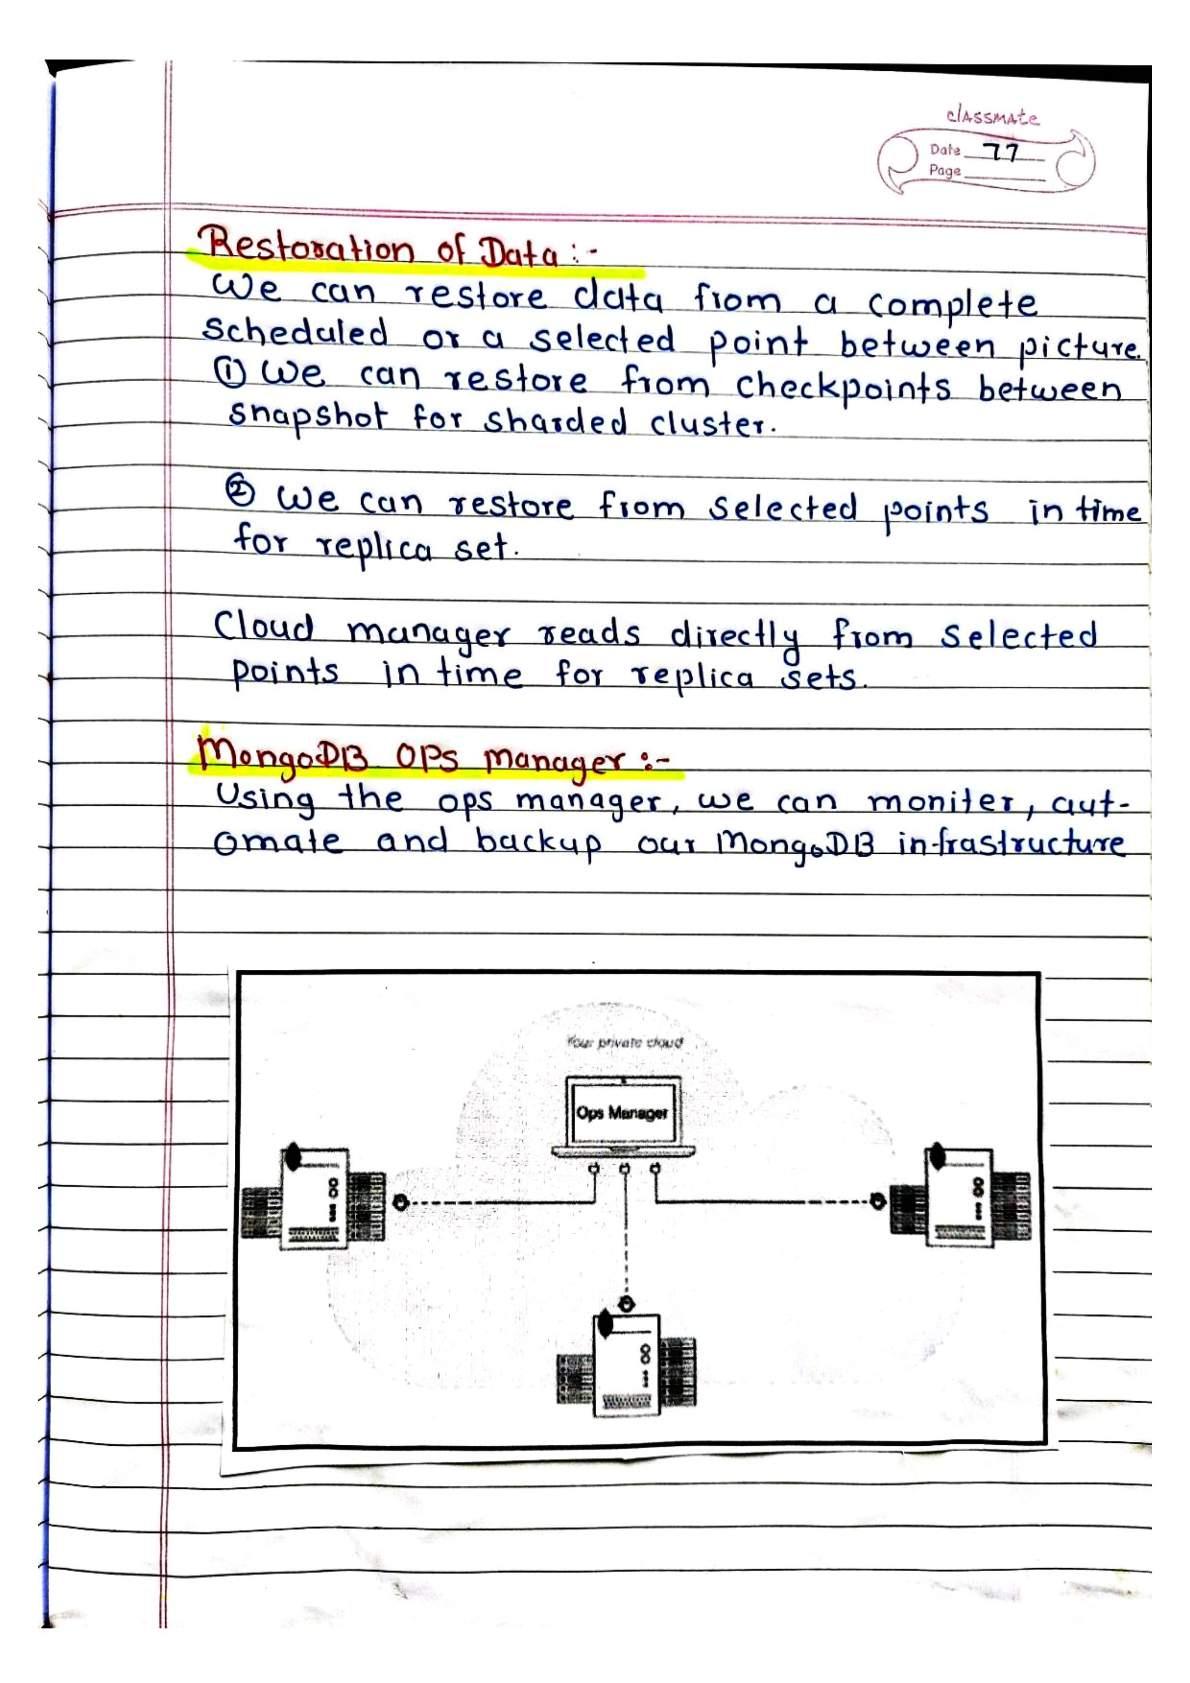 classmate
Date 77
Page
Restoration of Data :-
We can restore data from a complete
Scheduled or a selected point between picture.
① We can restore from checkpoints between
snapshot for sharded cluster.
② We can restore from selected points in time
for replica set.
Cloud manager reads directly from selected
points in time for replica sets.
MongoDB OPS manager :-
Using the ops manager, we can moniter, aut-
omate and backup our MongoDB infrastructure
Your private cloud
Ops Manager